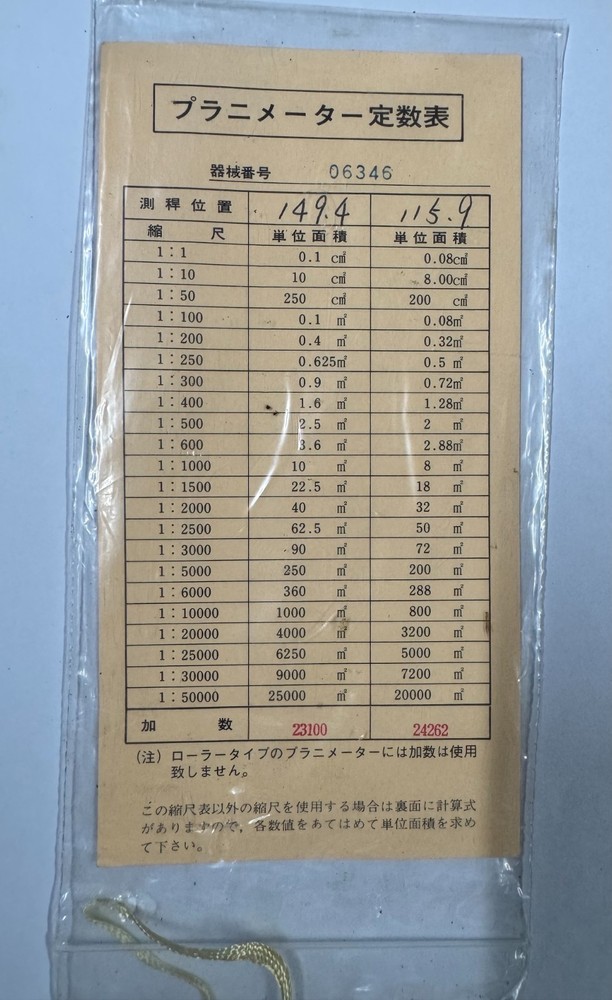 プラニメーター定数表
器械番号 06346
測桿位置 149.4 115.9
縮尺 単位面積 単位面積
1:1 0.1 c㎡ 0.08c㎡
1:10 10 c㎡ 8.00c㎡
1:50 250 c㎡ 200 c㎡
1:100 0.1 ㎡ 0.08㎡
1:200 0.4 ㎡ 0.32㎡
1:250 0.625㎡ 0.5 ㎡
1:300 0.9 ㎡ 0.72㎡
1:400 1.6 ㎡ 1.28㎡
1:500 2.5 ㎡ 2 ㎡
1:600 3.6 ㎡ 2.88㎡
1:1000 10 ㎡ 8 ㎡
1:1500 22.5 ㎡ 18 ㎡
1:2000 40 ㎡ 32 ㎡
1:2500 62.5 ㎡ 50 ㎡
1:3000 90 ㎡ 72 ㎡
1:5000 250 ㎡ 200 ㎡
1:6000 360 ㎡ 288 ㎡
1:10000 1000 ㎡ 800 ㎡
1:20000 4000 ㎡ 3200 ㎡
1:25000 6250 ㎡ 5000 ㎡
1:30000 9000 ㎡ 7200 ㎡
1:50000 25000 ㎡ 20000 ㎡
加数 23100 24262
(注) ローラータイプのプラニメーターには加数は使用
致しません。
この縮尺表以外の縮尺を使用する場合は裏面に計算式
がありますので,各数値をあてはめて単位面積を求め
て下さい。